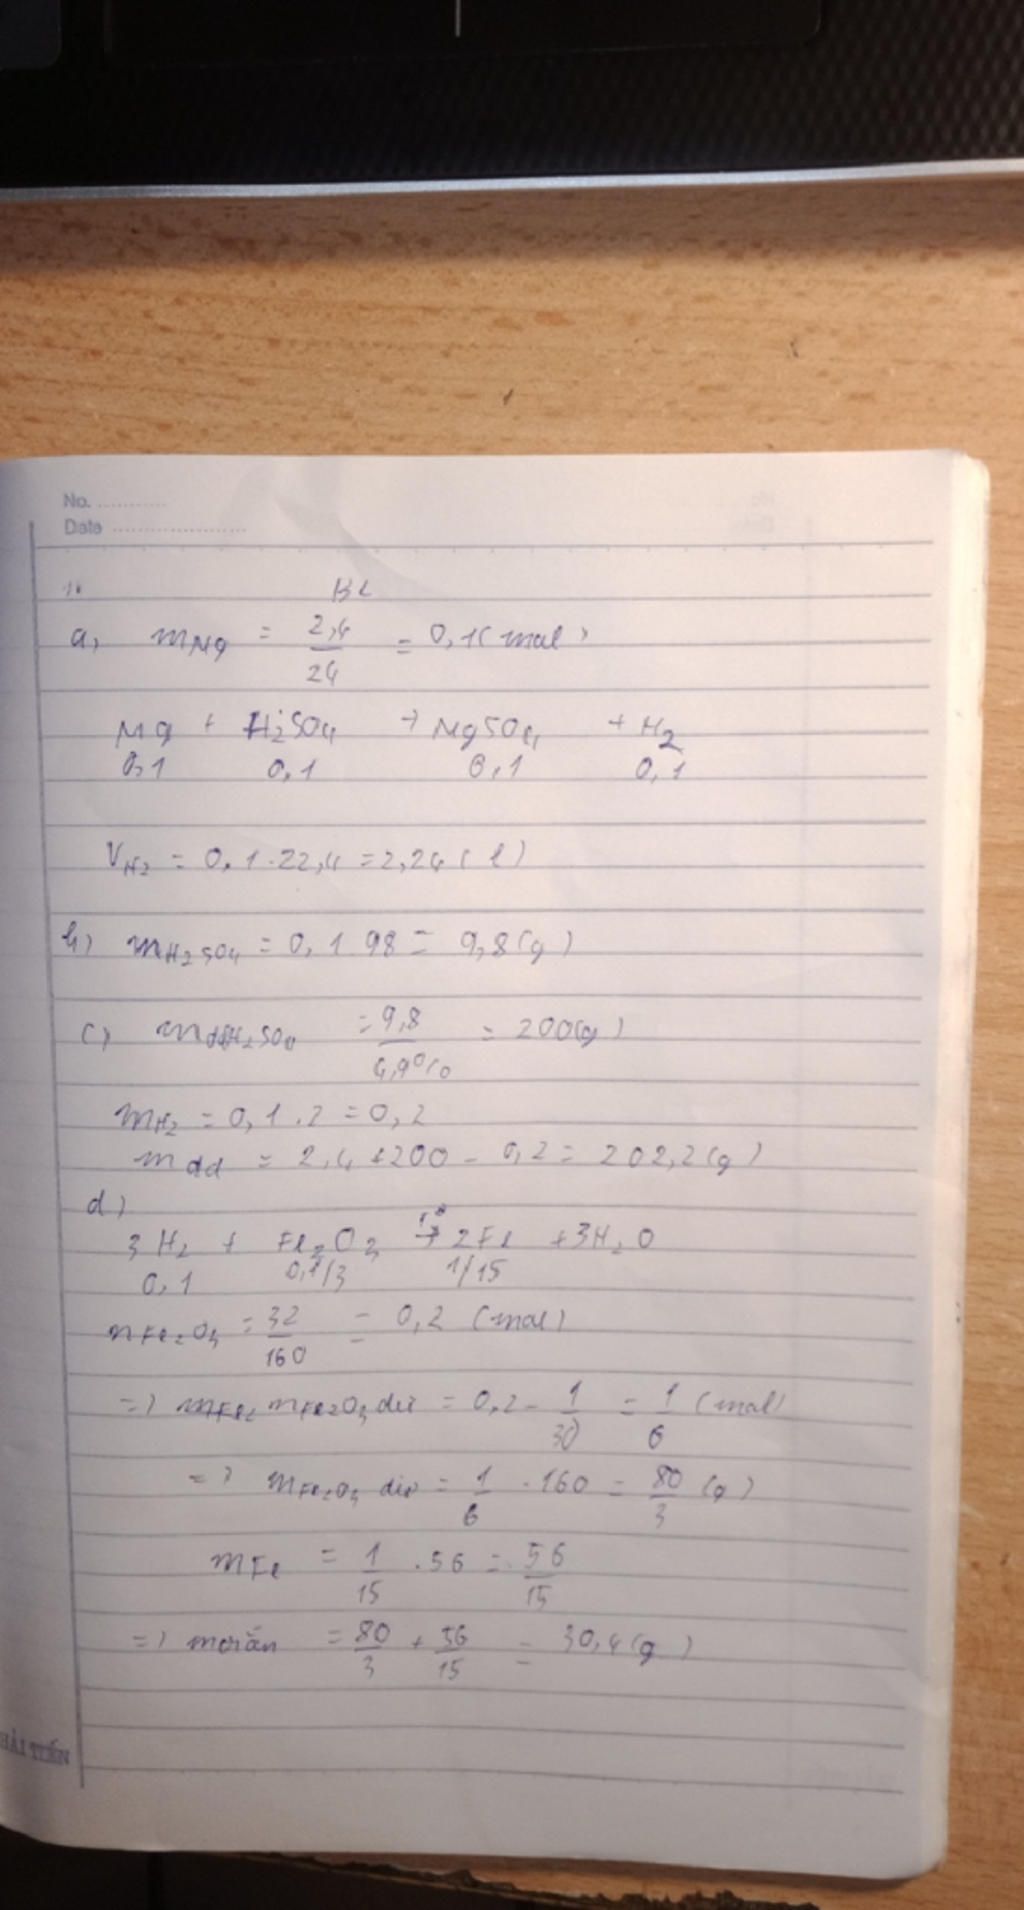 No. ...........
Date .....................
1. BL
a, mMg = 2,4/24 = 0,1 (mol)
Mg + H2SO4 → MgSO4 + H2
0,1 0,1 0,1 0,1
VH2 = 0,1.22,4 = 2,24 (l)
b) mH2SO4 = 0,1.98 = 9,8 (g)
c) mddH2SO4 = 9,8/4,9% = 200(g)
mH2 = 0,1.2 = 0,2
mdd = 2,4+200 - 0,2 = 202,2(g)
d)
3H2 + Fe2O3 t°→ 2Fe + 3H2O
0,1 0,1/3 1/15
nFe2O3 = 32/160 = 0,2 (mol)
=) mFe2 mFe2O3 dư = 0,2 - 1/30 = 1/6 (mol)
=) mFe2O3 dư = 1/6 . 160 = 80/3 (g)
mFe = 1/15 . 56 = 56/15
=) mrắn = 80/3 + 56/15 = 30,4(g)
HẢI TIẾN